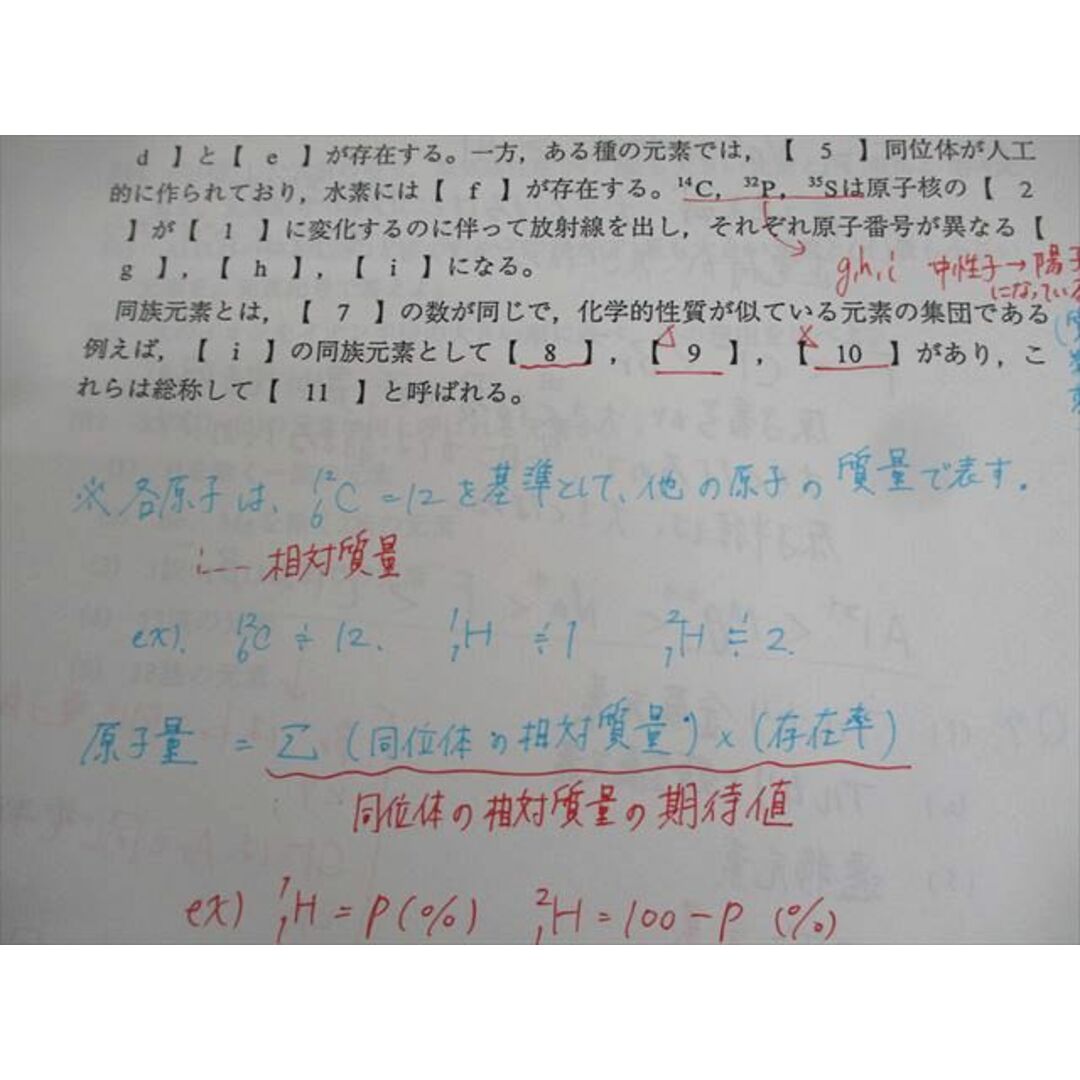 d 】と【 e 】が存在する。一方,ある種の元素では,【 5 】同位体が人工
的に作られており,水素には【 f 】が存在する。¹⁴C,³²P,³⁵Sは原子核の【 2
】が【 1 】に変化するのに伴って放射線を出し,それぞれ原子番号が異なる【
g 】,【 h 】,【 i 】になる。
gh,i 中性子→陽子
になっている
同族元素とは,【 7 】の数が同じで,化学的性質が似ている元素の集団である
例えば,【 i 】の同族元素として【 8 】,【 9 】,【 10 】があり,こ
れらは総称して【 11 】と呼ばれる。
※各原子は、¹²₆C=12を基準として、他の原子の質量で表す.
相対質量
ex). ¹²₆C≒12. ¹₁H≒1 ²₁H≒2.
原子量 = Σ(同位体の相対質量)×(存在率)
同位体の相対質量の期待値
ex) ¹₁H=P(%) ²₁H=100-P (%)